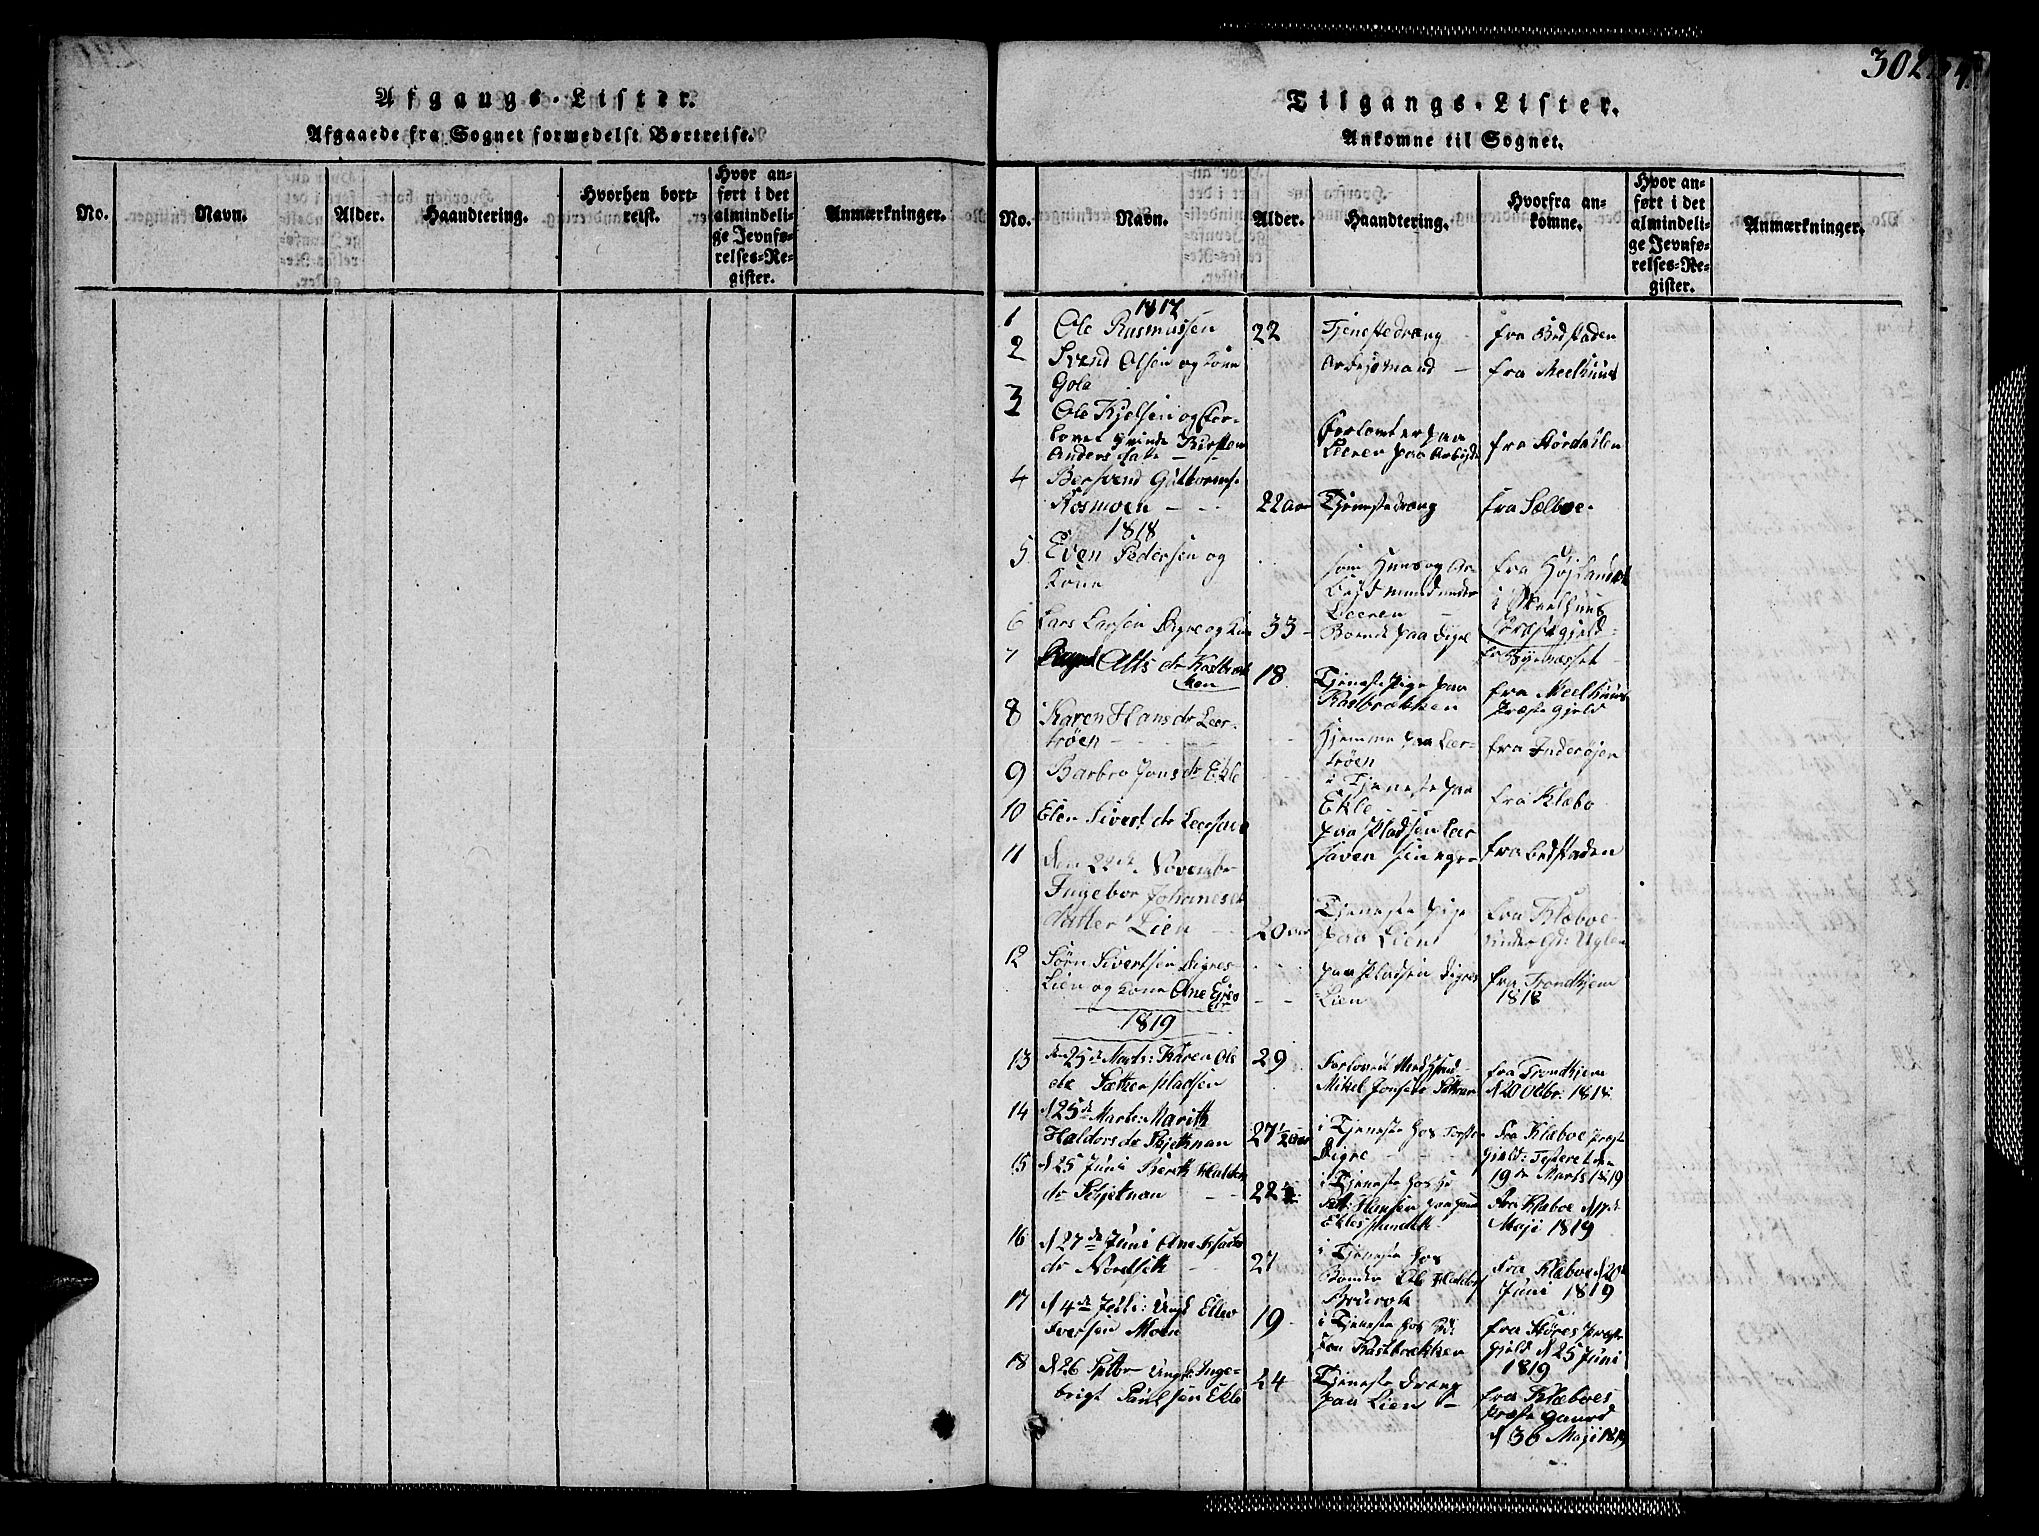 Afgangs-Lister.
Afgaaede fra Sognet formedelst Bortreise.
No.
Navn.
Alder.
Haandtering.
Hvorhen bort-
reist.
Hvor an-
ført i det
almindeli-
ge Jevnfø-
relses-Re-
gister.
Anmærkninger.
302
Tilgangs-Lister.
Ankomne til Sognet.
No.
Navn.
Alder.
Haandtering.
Hvorfra an-
komne.
Hvor an-
ført i det
almindeli-
ge Jevnfø-
relses-Re-
gister.
Anmærkninger.
1817
1 Ole Rasmussen 22 Tjenestedræng fra Bedstaden
2 Svend Olsen og Kone Arbejdsmand - fra Meelhuus
Gole
3 Ole Kjelsen og For-
lovet qvinde Kirsten
Anders datr -
Forlovet er paa
Leeren paa Arbejde
fra Størdalen
4 Bersvend Guttorms.
Rosmoen - - - 22 aar Tjenestedræng fra Sælboe.
1818
5 Even Pedersen og
Kone
som Huus og Ar-
bejdsmand under
Leeren -
fra Højlandet
i Meelhuus
Præstegjeld
6 Lars Larsen Digre og Kone 33 - Bonde paa Digre fr Byenæsset
7 Alts dr Kastbræk
ken
18 Tjeneste Pige paa
Kastbrækken
fra Meelhuus
Præste Gjeld
8 Karen Hans dr Leer-
trøen - - - -
Hjemme paa Leer-
trøen
fra Inderøjen
9 Barbro Jons dr Ekle - - i Tjeneste paa
Ekle
fra Klæbo
10 Elen Sivert dr Leersaven
paa Pladsen Leer
saven
fra bedstaden
11 den 22de Novembr
Ingebor Johanes
datter Lien - - 20 aar
Tjeneste Pige
paa Lien
fra Klæboe
under Gd: Uglen
12 Sørn Sivertsen Digres-
Lien og Kone Ane
paa Pladsen Digres
Lien
fra Trondhjem
1818
1819
13 den 25de Marts: Karen Ols
dr Sætter pladsen
29
Forlovet med
Mikel Jonsen
fra Trondhjem
d 20 Octbr. 1818
14 d 25de Marts Marith
Haldors dr Skjetnan
27 1/2 aar
i Tjeneste hos
Digre - - -
fra Klæboe Præste
gjeld:
19de Marts 1819
15 d 25 Juni Berit Haldor
dr Skjetnan - -
22
i Tjeneste hos
Hansen paa
fra Klæboe d 17de
Maji 1819
16 d 27de Juni Ane
dr Nordseth - -
27
i Tjeneste hos
Bonden Ole Haldors
fra Klæboe d 20de
Juni 1819
17 d 4de Juli: Ungk Ellev
Iversen Moen
19
i Tjeneste hos
Jon Kastbrækken
fra Størens Præste
Gjeld d 25 Juni
1819
18 d 26 Septbr Ungk: Inge-
brigt Paulsen Ekle
24
Tjeneste Dræng
paa Lien -
fra Klæboes
Præste Gaard
d 30 Maji 1819